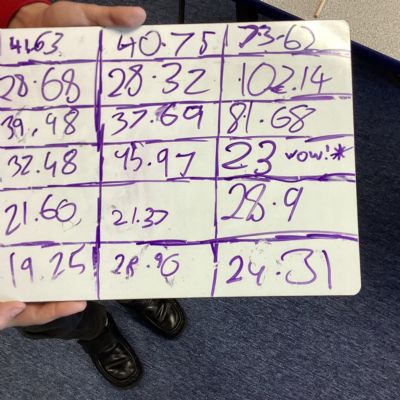 41.63 40.75 73.62
28.68 28.32 102.14
39.48 37.69 81.68
32.48 45.97 23 wow!*
21.60 21.37 28.9
19.25 28.96 24.31